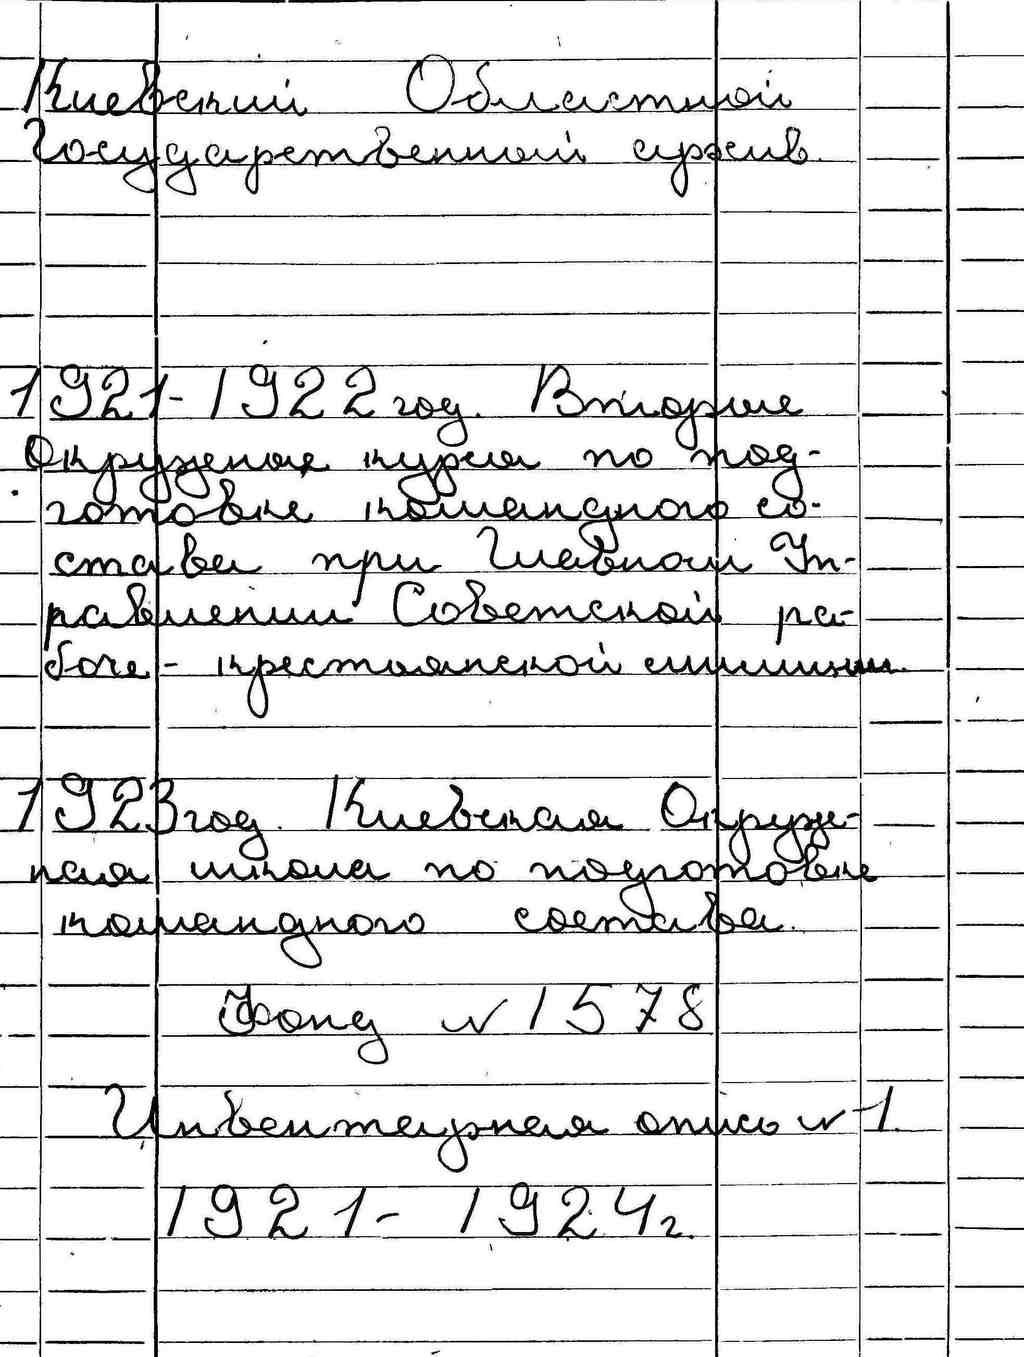 Киевский Областной
Государственный архив.
1921-1922 год. Вторые
Окружные курсы по под-
готовке командного со-
става при Главном Уп-
равлении Советской ра-
боче - крестьянской милиции.
1923 год. Киевская Окруж-
ная школа по подготовке
командного состава.
Фонд № 1578
Инвентарная опись № 1.
1921 - 1924 г.